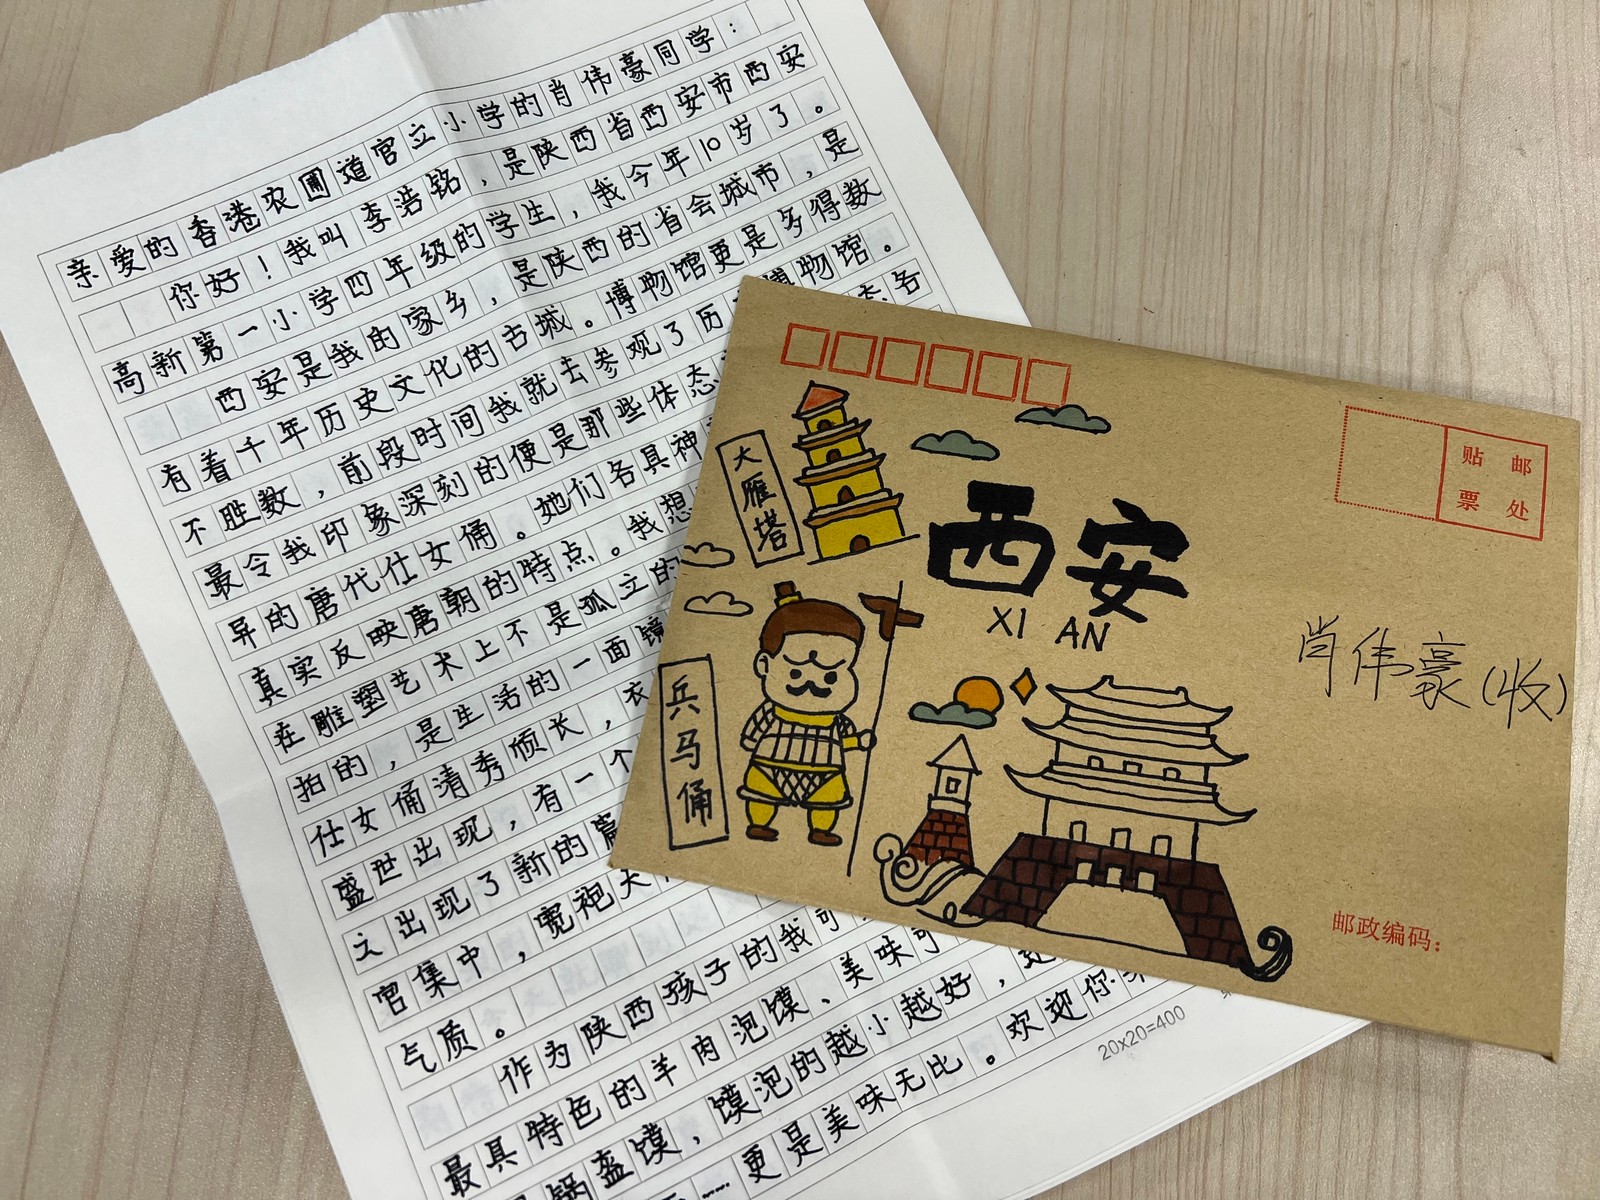 亲爱的香港农圃道官立小学的肖伟豪同学：
你好！我叫李浩铭，是陕西省西安市西安
高新第一小学四年级的学生，我今年10岁了。
西安是我的家乡，是陕西的省会城市，是
有着千年历史文化的古城。博物馆更是多得数
不胜数，前段时间我就去参观了历博物馆。
最令我印象深刻的便是那些体态各
异的唐代仕女俑。她们各具神
真实反映唐朝的特点。我想
在雕塑艺术上不是孤立的
拍的，是生活的一面镜
仕女俑清秀颀长，衣
盛世出现，有一个
之出现了新的
官集中，宽袍大
气质。
作为陕西孩子的我可
最具特色的羊肉泡馍、美味可
锅盔馍，馍泡的越小越好，
……更是美味无比。欢迎你来
20x20=400
贴邮
票处
大雁塔
西安
XI AN
兵马俑
肖伟豪(收)
邮政编码：